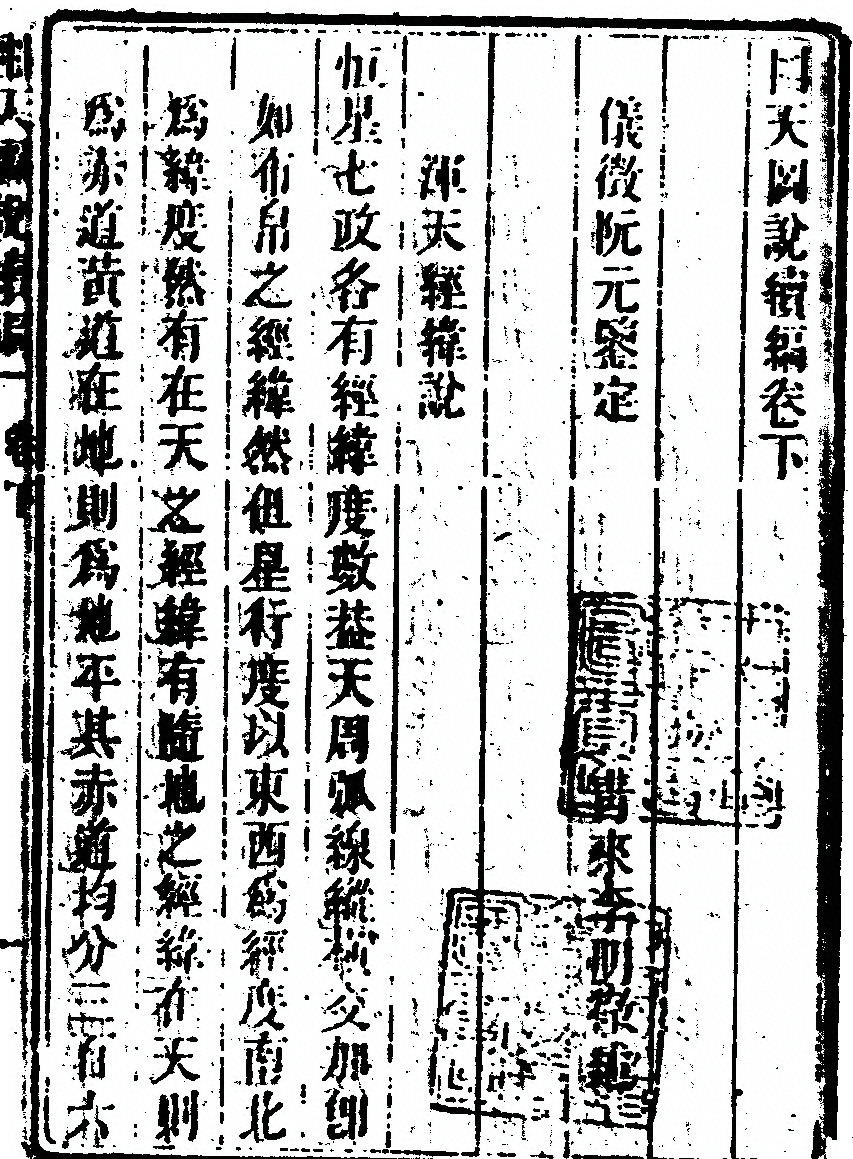 囬天圖說續編卷下
儀徵阮元鑒定
李明徹
渾天經緯說
恒星七政各有經緯度數葢天周弧線縱橫交加卽
如布帛之經緯然但星行度以東西爲經度南北
爲緯度然有在天之經緯有隨地之經緯在天則
爲赤道黃道在地則爲地平其赤道均分三百六